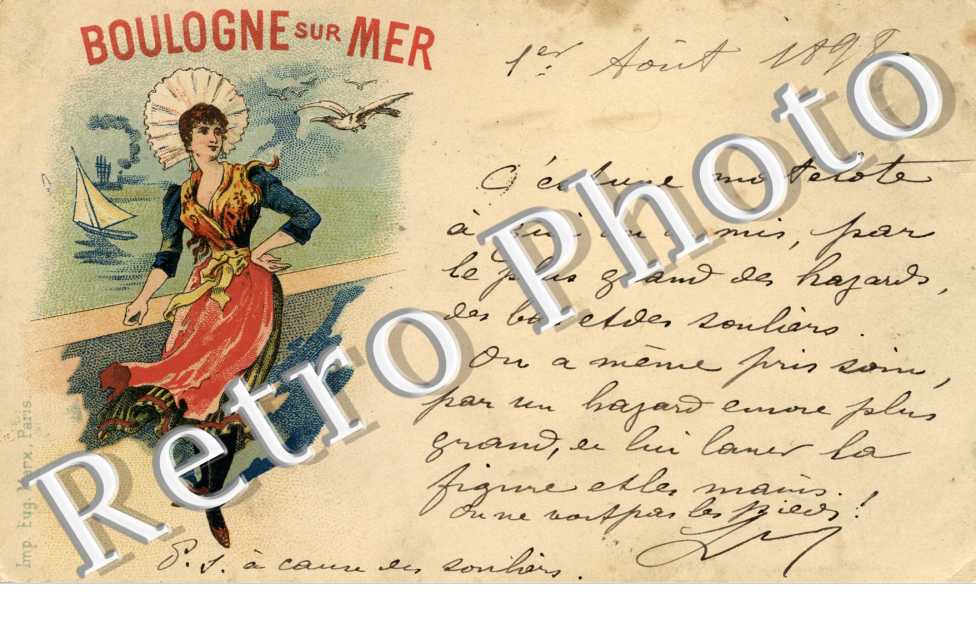 BOULOGNE SUR MER
1er Août 1898.
C'est une matelote
à qui on a mis, par
le plus grand des hazards,
des bas et des souliers.
On a même pris soin,
par un hazard encore plus
grand, de lui laver la
figure et les mains.
On ne voit pas les pieds!
P.S. à cause des souliers.
Imp. Eug. Marx. Paris.
Retro Photo